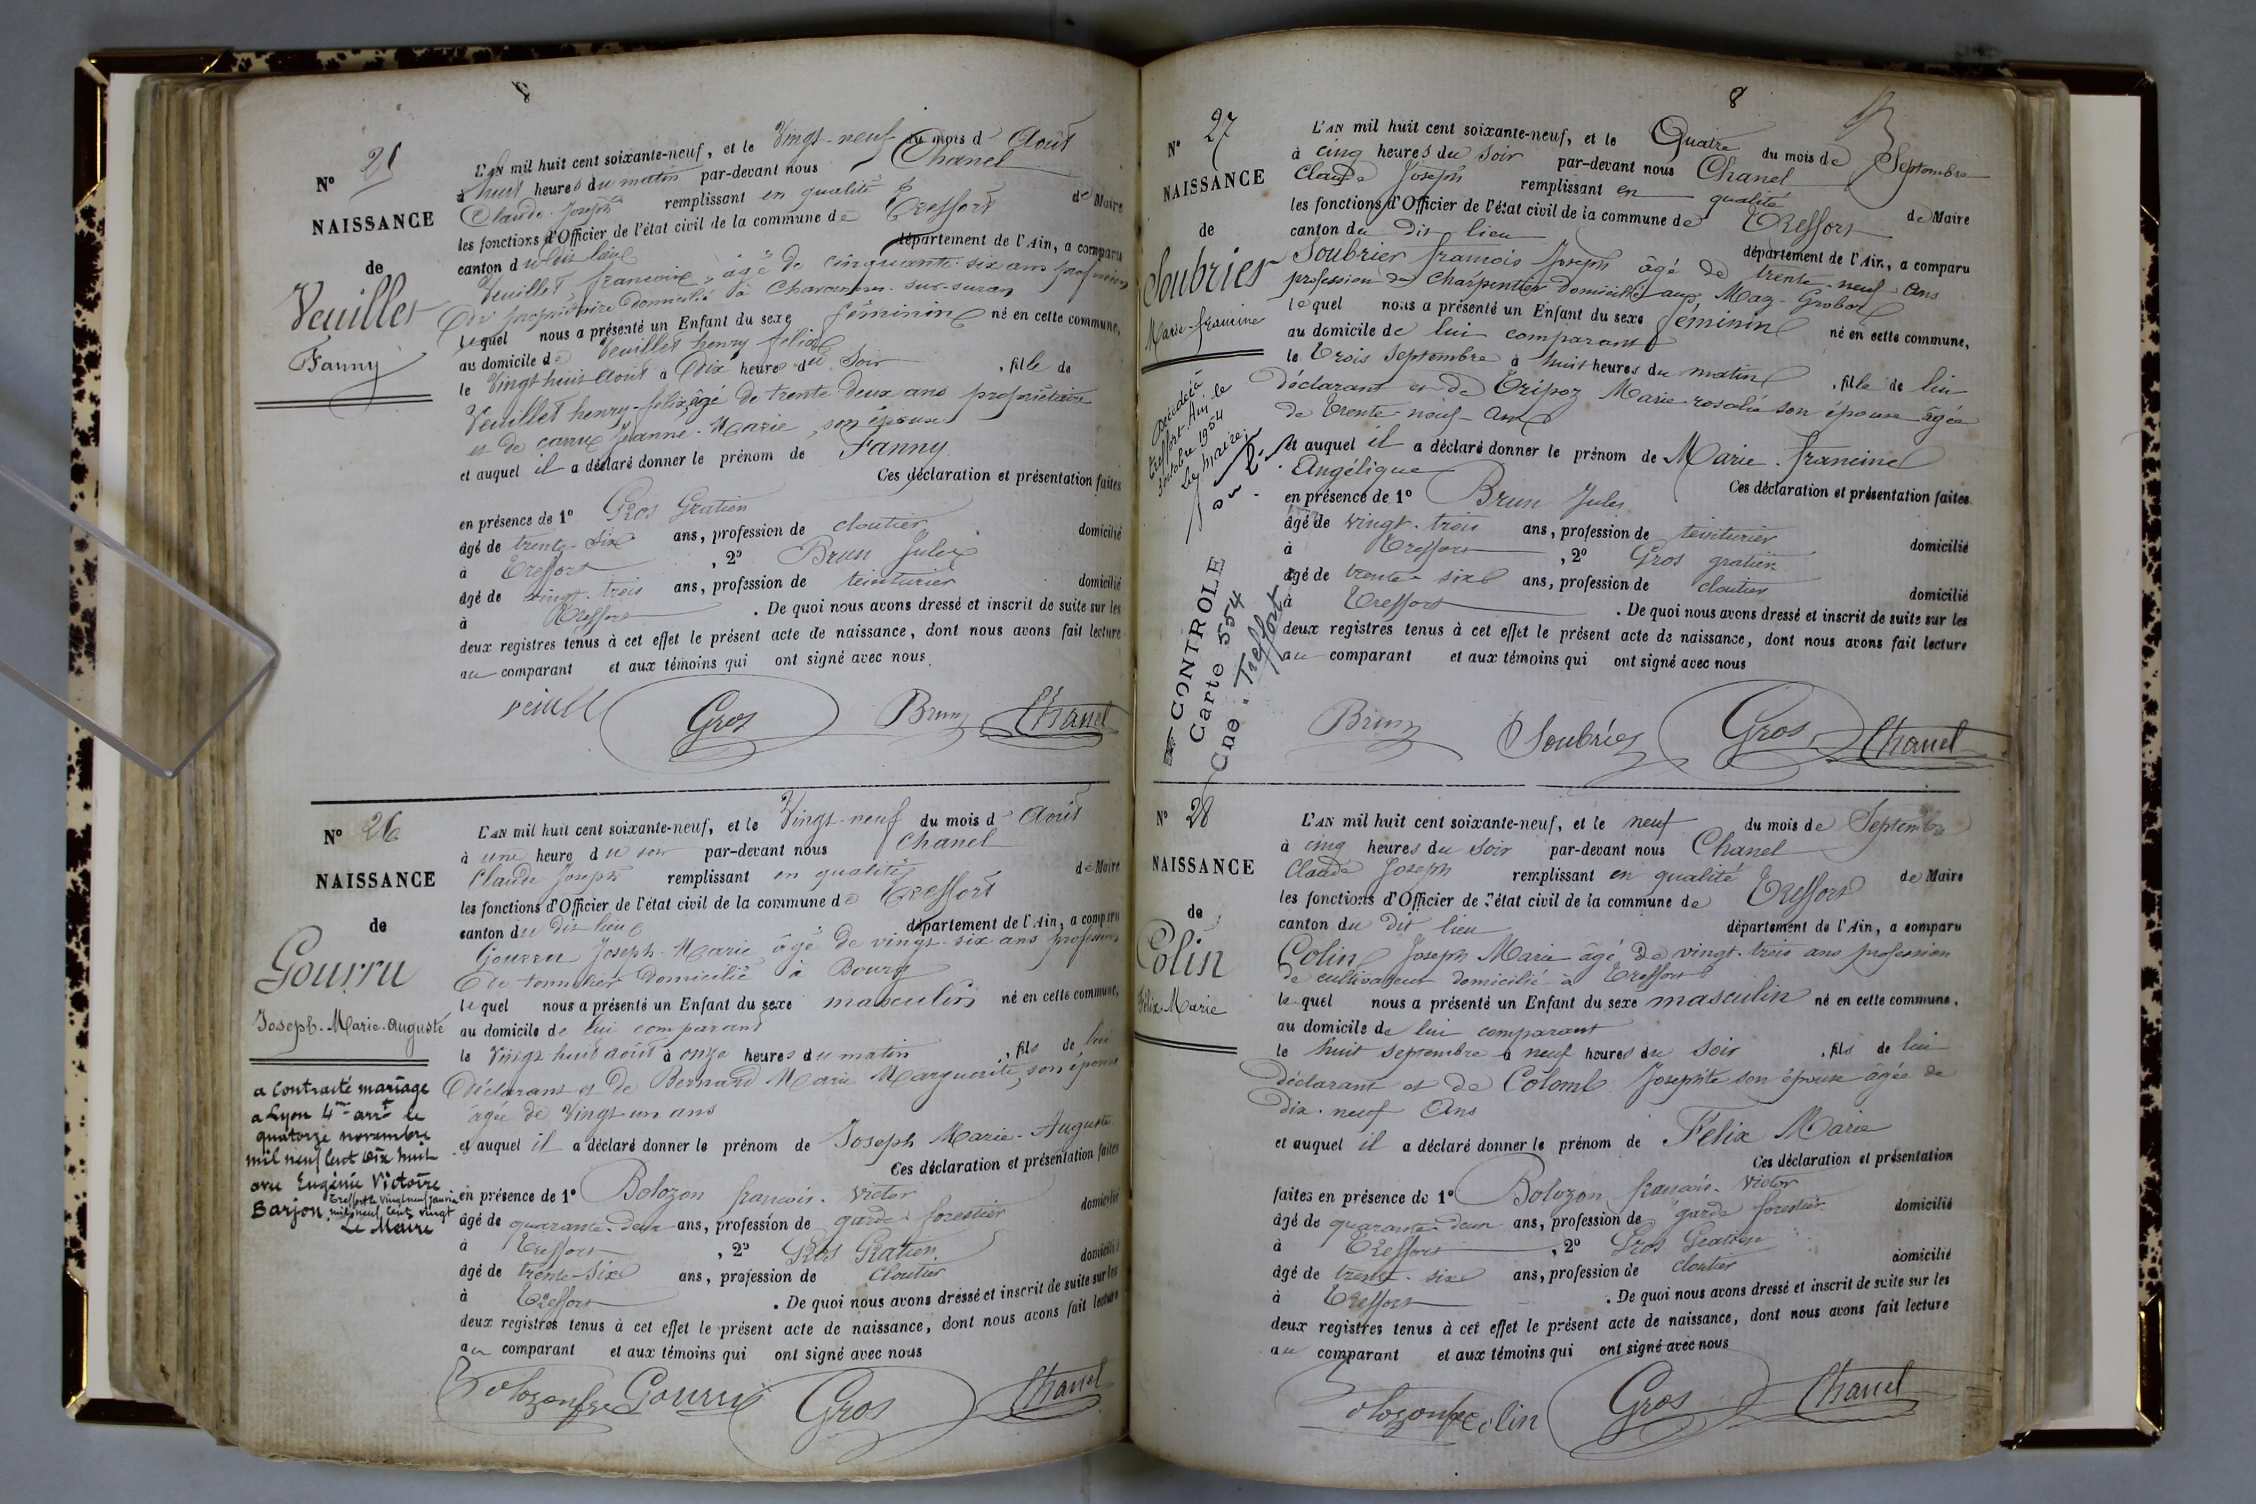 8
N° 25
NAISSANCE
de
Veuillet
Fanny
L'AN mil huit cent soixante-neuf, et le Vingt-neuf du mois d' Août
à huit heures du matin par-devant nous Chanel
Claude Joseph remplissant en qualité de Maire
les fonctions d'Officier de l'état civil de la commune de Treffort
canton du dit lieu département de l'Ain, a comparu
Veuillet françois, âgé de cinquante-six ans profession
de propriétaire domicilié à Chavannes-sur-suran
lequel nous a présenté un Enfant du sexe féminin né en cette commune,
au domicile de Veuillet henry félix
le Vingt huit Août à Dix heures du Soir, fille de
Veuillet henry-félix âgé de trente deux ans propriétaire
et de Jeanne-Marie son épouse
et auquel il a déclaré donner le prénom de Fanny
Ces déclaration et présentation faites
en présence de 1° Gros Gratien
âgé de trente-six ans, profession de cloutier domicilié
à Treffort, 2° Brun Jules
âgé de vingt-trois ans, profession de teinturier domicilié
à Treffort. De quoi nous avons dressé et inscrit de suite sur les
deux registres tenus à cet effet le présent acte de naissance, dont nous avons fait lecture
au comparant et aux témoins qui ont signé avec nous.
Gros Brun Chanel
N° 26
NAISSANCE
de
Gourru
Joseph-Marie-Auguste
a contracté mariage
a Lyon 4me arrt le
quatorze novembre
mil neuf cent dix huit
avec Eugénie Victoire
Barjon. Treffort le vingt neuf janvier
mil neuf cent vingt
Le Maire
L'AN mil huit cent soixante-neuf, et le Vingt-neuf du mois d' Août
à une heure du soir par-devant nous Chanel
Claude Joseph remplissant en qualité de Maire
les fonctions d'Officier de l'état civil de la commune de Treffort
canton du dit lieu département de l'Ain, a comparu
Gourru Joseph-Marie âgé de vingt-six ans profession
de domicilié à Bourg
lequel nous a présenté un Enfant du sexe masculin né en cette commune,
au domicile de lui comparant
le Vingt huit août à onze heures du matin, fils de lui
Déclarant et de Bernard Marie Marguerite, son épouse
âgée de Vingt-un ans
et auquel il a déclaré donner le prénom de Joseph Marie-Auguste
Ces déclaration et présentation faites
en présence de 1° Bolozon françois-Victor
âgé de quarante-deux ans, profession de garde forestier domicilié
à Treffort, 2° Gros Gratien
âgé de trente-six ans, profession de Cloutier domicilié
à Treffort. De quoi nous avons dressé et inscrit de suite sur les
deux registres tenus à cet effet le présent acte de naissance, dont nous avons fait lecture
au comparant et aux témoins qui ont signé avec nous
Gourru Gros Chanel
8
N° 27
NAISSANCE
de
Soubrier
Marie-francine
Décédée à
Treffort Ain le
octobre 1954
Le Maire
CONTROLE
Carte 554
Cne. Treffort
L'AN mil huit cent soixante-neuf, et le Quatre du mois de Septembre
à cinq heures du soir par-devant nous Chanel
Claude Joseph remplissant en qualité de Maire
les fonctions d'Officier de l'état civil de la commune de Treffort
canton du dit lieu département de l'Ain, a comparu
Soubrier francois Joseph âgé de trente-neuf Ans
profession de Charpentier domicilié aux Maz-Grobon
lequel nous a présenté un Enfant du sexe féminin né en cette commune,
au domicile de lui comparant
le Trois Septembre à huit heures du matin, fille de lui
déclarant et de Tripoz Marie-rosalie son épouse âgée
de Trente-neuf-Ans
et auquel il a déclaré donner le prénom de Marie-francine
Angélique Ces déclaration et présentation faites
en présence de 1° Brun Jules
âgé de vingt-trois ans, profession de teinturier
à Treffort, 2° Gros gratien domicilié
âgé de trente-six ans, profession de cloutier domicilié
à Treffort. De quoi nous avons dressé et inscrit de suite sur les
deux registres tenus à cet effet le présent acte de naissance, dont nous avons fait lecture
au comparant et aux témoins qui ont signé avec nous
Brun Soubrier Gros Chanel
N° 28
NAISSANCE
de
Colin
Félix-Marie
L'AN mil huit cent soixante-neuf, et le neuf du mois de Septembre
à cinq heures du Soir par-devant nous Chanel
Claude Joseph remplissant en qualité de Maire
les fonctions d'Officier de l'état civil de la commune de Treffort
canton du dit lieu département de l'Ain, a comparu
Colin Joseph Marie âgé de vingt-trois ans profession
de cultivateur domicilié à Treffort
lequel nous a présenté un Enfant du sexe masculin né en cette commune,
au domicile de lui comparant
le huit septembre à neuf heures du Soir, fils de lui
déclarant et de Colomb Josephte son épouse âgée de
dix-neuf Ans
et auquel il a déclaré donner le prénom de Félix Marie
Ces déclaration et présentation
faites en présence de 1° Bolozon françois-Victor
âgé de quarante-deux ans, profession de garde forestier domicilié
à Treffort, 2° Gros Gratien
âgé de trente-six ans, profession de cloutier domicilié
à Treffort. De quoi nous avons dressé et inscrit de suite sur les
deux registres tenus à cet effet le présent acte de naissance, dont nous avons fait lecture
au comparant et aux témoins qui ont signé avec nous
Colin Gros Chanel